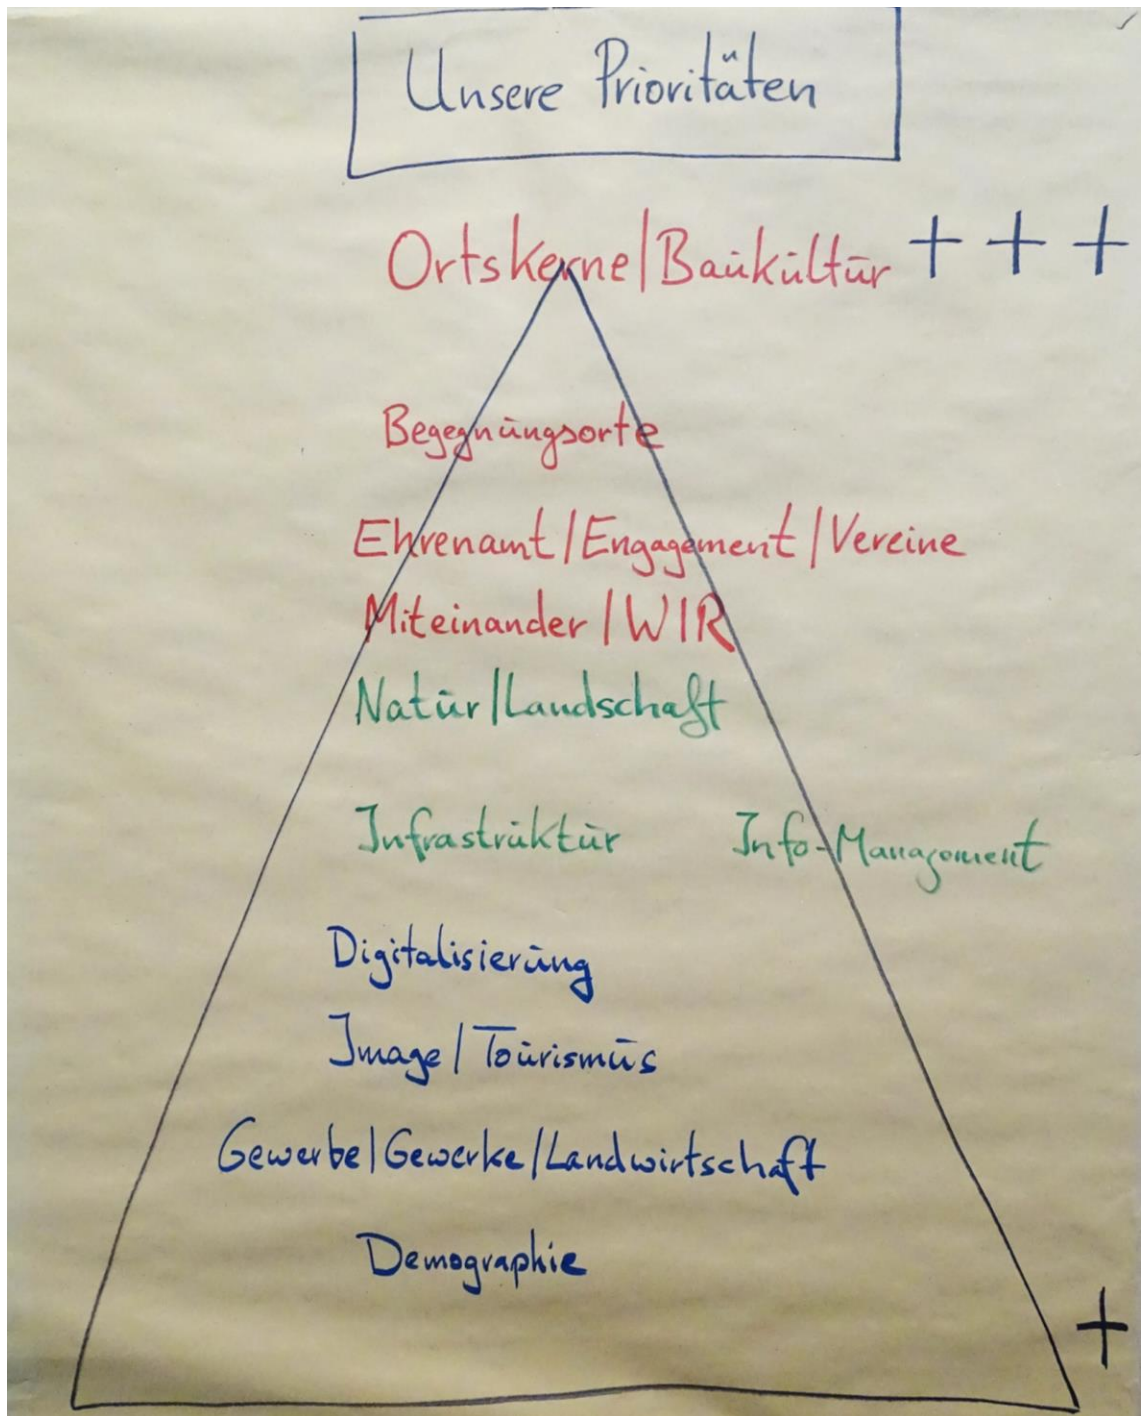 Unsere Prioritäten
Ortskerne/Baukultur + + +
Begegnungsorte
Ehrenamt/Engagement/Vereine
Miteinander/WIR
Natur/Landschaft
Infrastruktur Info-Management
Digitalisierung
Image/Tourismus
Gewerbe/Gewerke/Landwirtschaft
Demographie
+